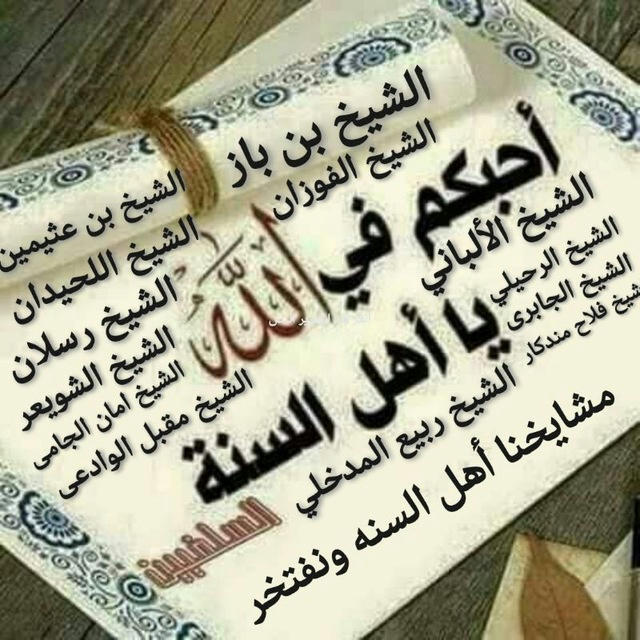 الشيخ بن باز
الشيخ الفوزان
أحبكم في الله
يا أهل السنة
السلفيين
الشيخ الألباني
الشيخ الرحيلي
الشيخ الجابرى
شيخ فلاح مندكار
الشيخ ربيع المدخلي
الشيخ بن عثيمين
الشيخ اللحيدان
الشيخ رسلان
الشيخ الشويعر
الشيخ امان الجامى
الشيخ مقبل الوادعى
مشايخنا أهل السنه ونفتخر